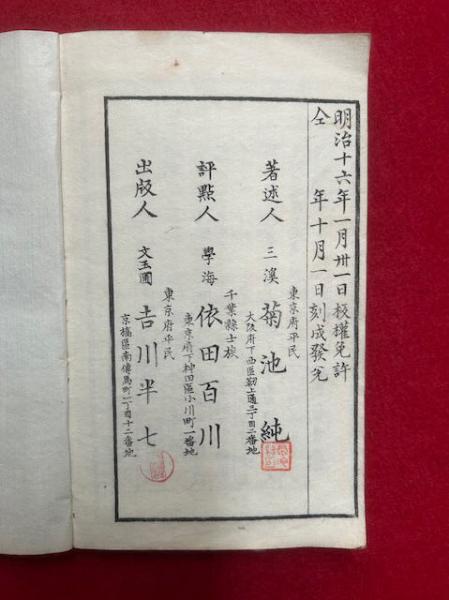 明治十六年一月卅一日板權免許
仝　　年十月一日刻成發兌
東京府平民
著述人　三溪　菊池純
大阪府下西區靭上通二丁目二番地
千葉縣士族
評點人　學海　依田百川
東京府下神田區小川町一番地
東京府平民
出版人　文玉圃　吉川半七
京橋區南傳馬町一丁目十二番地